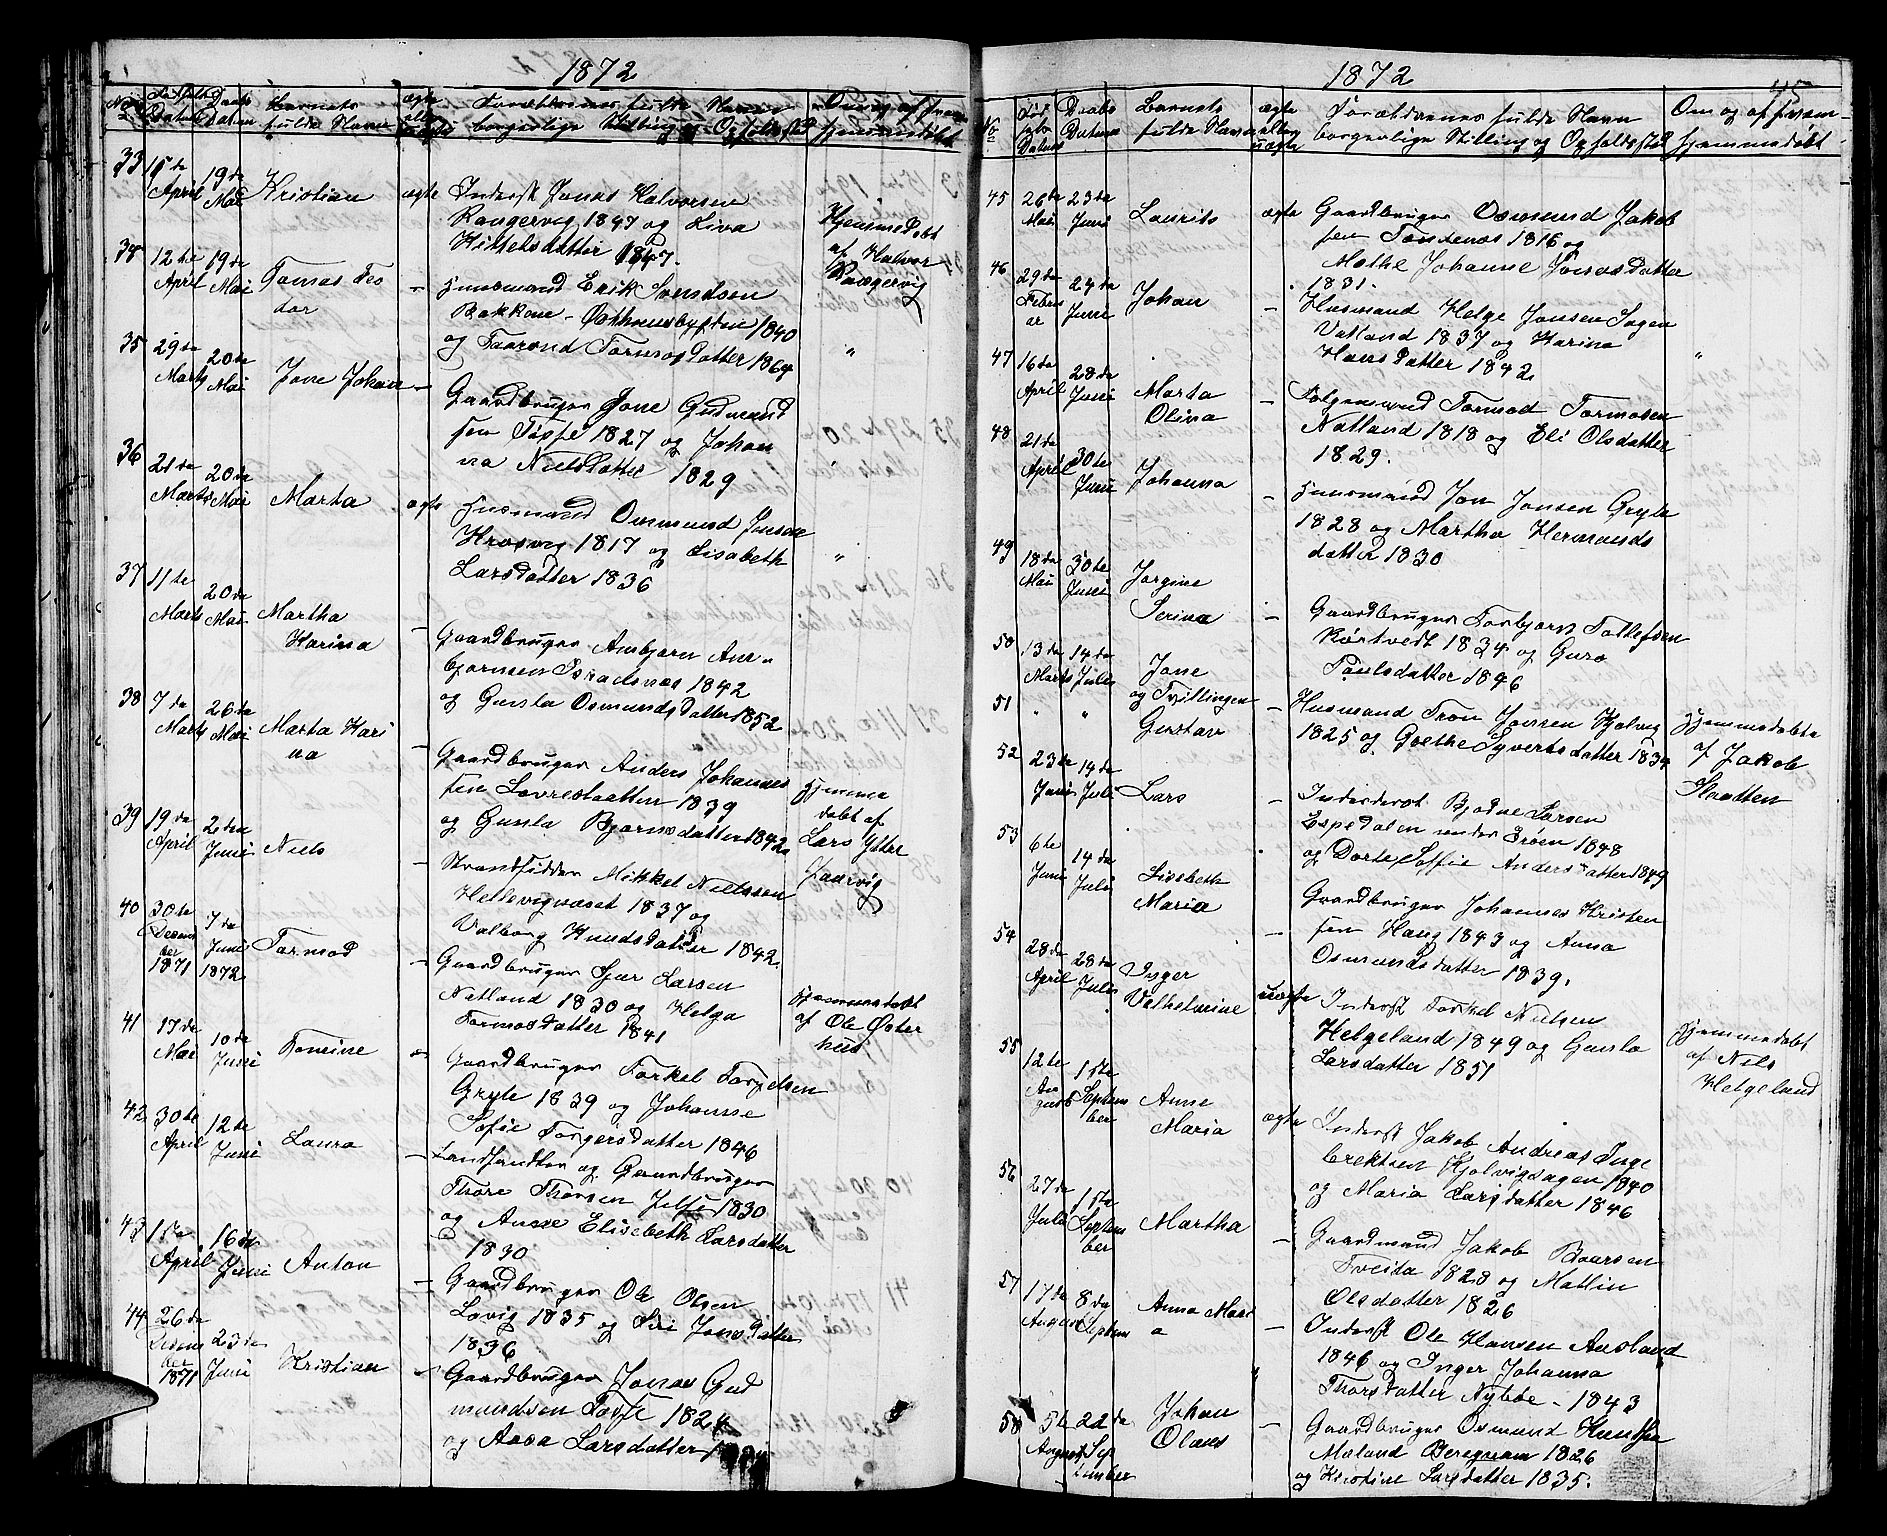 1872
No Fødsels Datum Daabs Datum Barnets fulde Navn ægte eller uægte Forældrenes fulde Navn borgerlige Stilling og Opholdssted Om og af hvem hjemmedøbt
33 15de April 19de Mai Kristian ægte Inderst Jonas Halvorsen
Raugervig 1847 og Siva
Kittelsdatter 1847.
Hjemmedøbt
af Halvor
Raugervig
34 12te April 19de Mai Tomas Teodor - Huusmand Erik Svendsen
Bakkene - Østhuusbygden 1840
og Taarond Tormodsdatter 1864
35 29de Marts 20de Mai Jone Johan - Gaardbruger Jone Gudmund
sen Tøsse 1827 og Johan
na Nielsdatter 1829
"
36 21de Marts 20de Mai Marta ægte Huusmand Osmund Jonsen
Krosvig 1817 og Lisabeth
Larsdatter 1836
"
37 11te Marts 20de Mai Martha
Karina
- Gaardbruger Ambjørn Am-
bjørnsen 1842
og Gunla Osmundsdatter 1852
38 7de Marts 26de Mai Marta Kari
na
- Gaardbruger Anders Johannes
sen Lovrestaatten 1839
og Gunla Bjørnsdatter 1842
Hjemme
døbt af
Lars Yttre
39 19de April 2den Juni Niels - Strandsidder Mikkel Nielssen
Hellevignæset 1837 og
Valborg Knudsdatter 1842.
40 30te Decem
ber
1871 7de Juni 1872 Tormod - Gaardbruger Sjur Larsen
Natland 1830 og Helga
Tormodsdatter 1841
Hjemmedøbt
af Ole Øster
hus
41 17de Mai 10de Juni Tomine - Gaardbruger Torkel Torgelsen
Gryte 1839 og Johanne
Sofie Torgersdatter 1846
42 30te April 12te Juni Laura - Landhandler og Gaardbruger
Thore Thorsen Jelse 1830
og Anne Elisebeth Larsdatter
1830
43 1ste April 16de Juni Anton - Gaardbruger Ole Olsen
Lovig 1835 og Siri Jonsdatter
1836
44 26de Decem
ber
1871 23de Juni Kristian - Gaardbruger Jonas Gud
mundsen Tøsse 1824
og Aasa Larsdatter
1872
45
No Fødsels Datum Daabs Datum Barnets fulde Navn ægte eller uægte Forældrenes fulde Navn borgerlige Stilling og Opholdssted Om og af hvem hjemmedøbt
45 26de Mai 23de Juni Laurits ægte Gaardbruger Osmund Jakob
sen Tondenæs 1816 og
Mathe Johanne Jonasdatter
1831.
46 29de Febru
ar 24de Juni Johan - Husmand Helge Jonsen Sagen
Vatland 1837 og Karina
Hansdatter 1842
"
47 16de April 28de Juni Marta
Olina
- Følgemand Tormod Tormodsen
Natland 1818 og Eli Olsdatter
1829.
48 21de April 30te Juni Johanna - Huusmand Jon Jonsen Gryte
1828 og Martha Hermunds
datter 1830
49 18de Mai 30te Juni Jorgine
Serina
- Gaardbruger Torbjørn Tollefsen
Kørtvedt 1834 og Guro
Poulsdatter 1846
50 13de Marts 14de Juli Jone
og Tvillingen
51 " " Gustav
- Husmand Tron Jonsen Hjelvig
1825 og Grethe Syvertsdatter 1834
Hjemmedøbte
af Jakob
Slaatten
52 23de Juni 14de Juli Lars - Inderst Bjødne Larsen
Espedalen under Erøen 1848
og Dorte Soffie Andersdatter 1849
53 6te Juni 14de Juli Lisebeth
Maria
- Gaardbruger Johannes Kristen
sen Haug 1843 og Anna
Osmundsdatter 1839.
54 28de April 28de Juli Inger
Vilhelmine
uægte Inderst Torkel Nielsen
Helgeland 1849 og Gunla
Larsdatter 1851
Hjemmedøbt
af Niels
Helgeland
55 12te Au
gust 1ste Septem
ber Anne
Maria
ægte Inderst Jakob Andreas Inge
brektsen Hjelvigsagen 1840
og Maria Larsdatter 1846
56 27de Juli 1ste Septem
ber Martha - Gaardmand Jakob Baarsen
Tveita 1828 og Matlin
Olsdatter 1826
57 17de August 8de Septem Anna Mari
a
- Inderst Ole Hansen Ausland
1846 og Inger Johanna
Thorsdatter Nybbe - 1843
"
58 5te August 22de Sep
tember Johan
Olaus
- Gaardbruger Osmund Knudsen
Moland Beregnam 1826
og Kristine Larsdatter 1835.